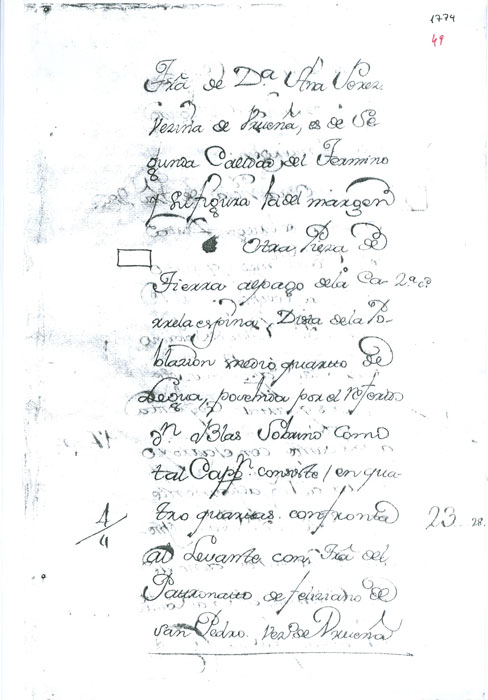 1774
49
Trã de D.ª Ana Perez
Vezina de Viueña, es de Se
gunda Calidad, del Termino
y su figura la del margen
Otra Pieza de
Tierra al pago de la Ca- 2ª cª
rrela espina, Dista de la Po-
blazion medio quarto de
Legua, povehida por el referido
Dn. Blas Sobrino Como
tal Cappn. consiste / en qua-
tro quartas confronta 23. 28.
1/4
al Levante con Trã del
Patrimonio, de feliziano de
San Pedro, Vezº de Viueña